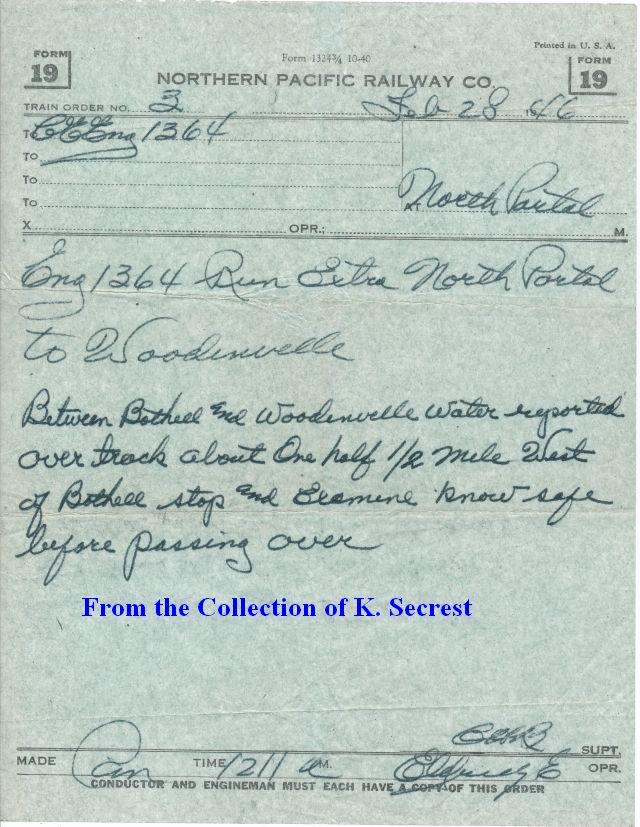 Printed in U. S. A.
FORM 19
Form 1324¾ 10-40
FORM 19
NORTHERN PACIFIC RAILWAY CO.
TRAIN ORDER NO. 3 Feb 28 1946
To C&E Eng 1364
To
To
To North Portal
X OPR.; M.
Eng 1364 Run Extra North Portal
to Woodinville
Between Bothell and Woodinville water reported
over track about One half 1/2 mile West
of Bothell stop and Examine know safe
before passing over
From the Collection of K. Secrest
SUPT.
MADE Com TIME 1211 a M. OPR.
CONDUCTOR AND ENGINEMAN MUST EACH HAVE A COPY OF THIS ORDER